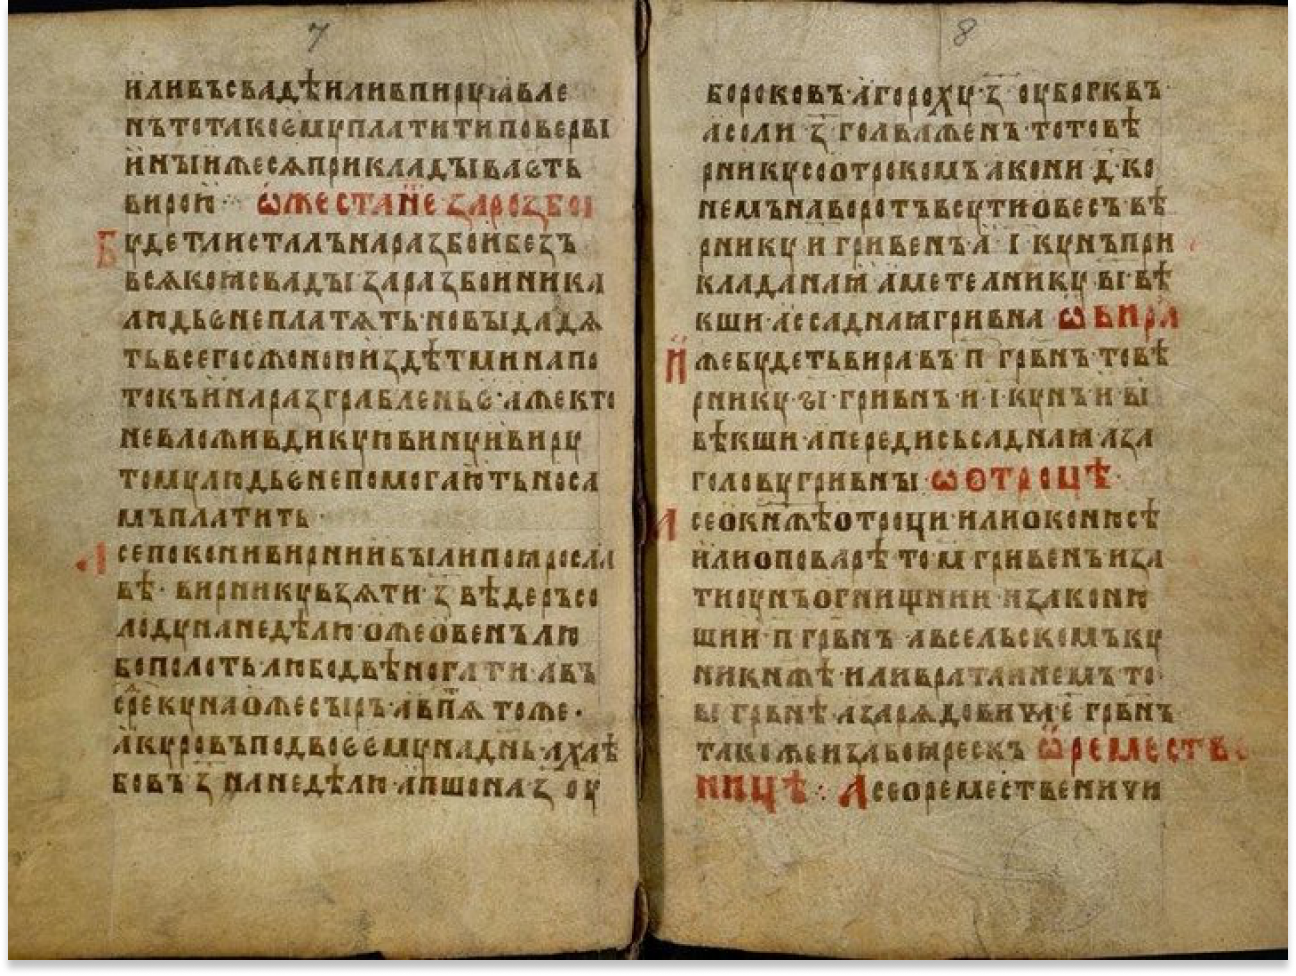 7
или въ свадѣ или в пиру ꙗвле
нъ то тако ѥму платити по верьви
инꙑи иже сѧ прикладꙑваѥть
вирои· ѡже станеть за розбои
Будеть ли сталъ на разбои безъ
всѧкоꙗ свадꙑ за разбоиника
людьѥ не платѧть· но вꙑдадѧ
ть всего с женою и з дѣтми на по
токъ и на разграбленьѥ· аже кто
не вложив дикую виную виру
тому людьѥ не помогають но са
мъ платить·
А се покони вирнии были при ꙗросла
вѣ· вирнику взѧти· з҃ вѣдеръ со
лоду на недѣлю· оже овенъ лю
бо полоть· любо двѣ ногати· а въ
среку на оже сыръ· а в пѧ тоже·
а куровъ по двоѥ ѥму на днь· а хлѣ
бовъ з҃ на недѣлю· а пшона з҃ оу
8
бороковъ· а гороху· з҃ оуборквъ·
а соли з҃ голваженъ· то то вѣ
рнику со отрокомъ· а кони д҃· ко
немъ на воротъ всути овесъ· вѣ
рнику и҃ гривенъ· а і҃ кунъ при
кладнаꙗ· а метелнику ві҃ вѣ
кши· а ссаднаꙗ гривна ѡ вира
Иже будеть вира въ п҃ грвнъ· то вѣ
рнику· ѕі҃· гривнъ и і҃ кунъ и ві҃
вѣкши· а передисьсаднаꙗ· а за
голову г҃ гривнꙑ· ѡ отроцѣ·
А се о кнѧжѣ отроци· или о конюсѣ
или о поварѣ то м҃ гривенъ· и за
тиоунъ огнищнии· и за коню
шии п҃ грвнъ· а в сельскомъ ку
никнѧжѣ· или в ратаинемъ то·
ві҃ грвнѣ· а за рѧдовичѧ· е҃ грвнъ
тако же и за боꙗреск· ѡ ремествь
ницѣ: А се о ремественичи